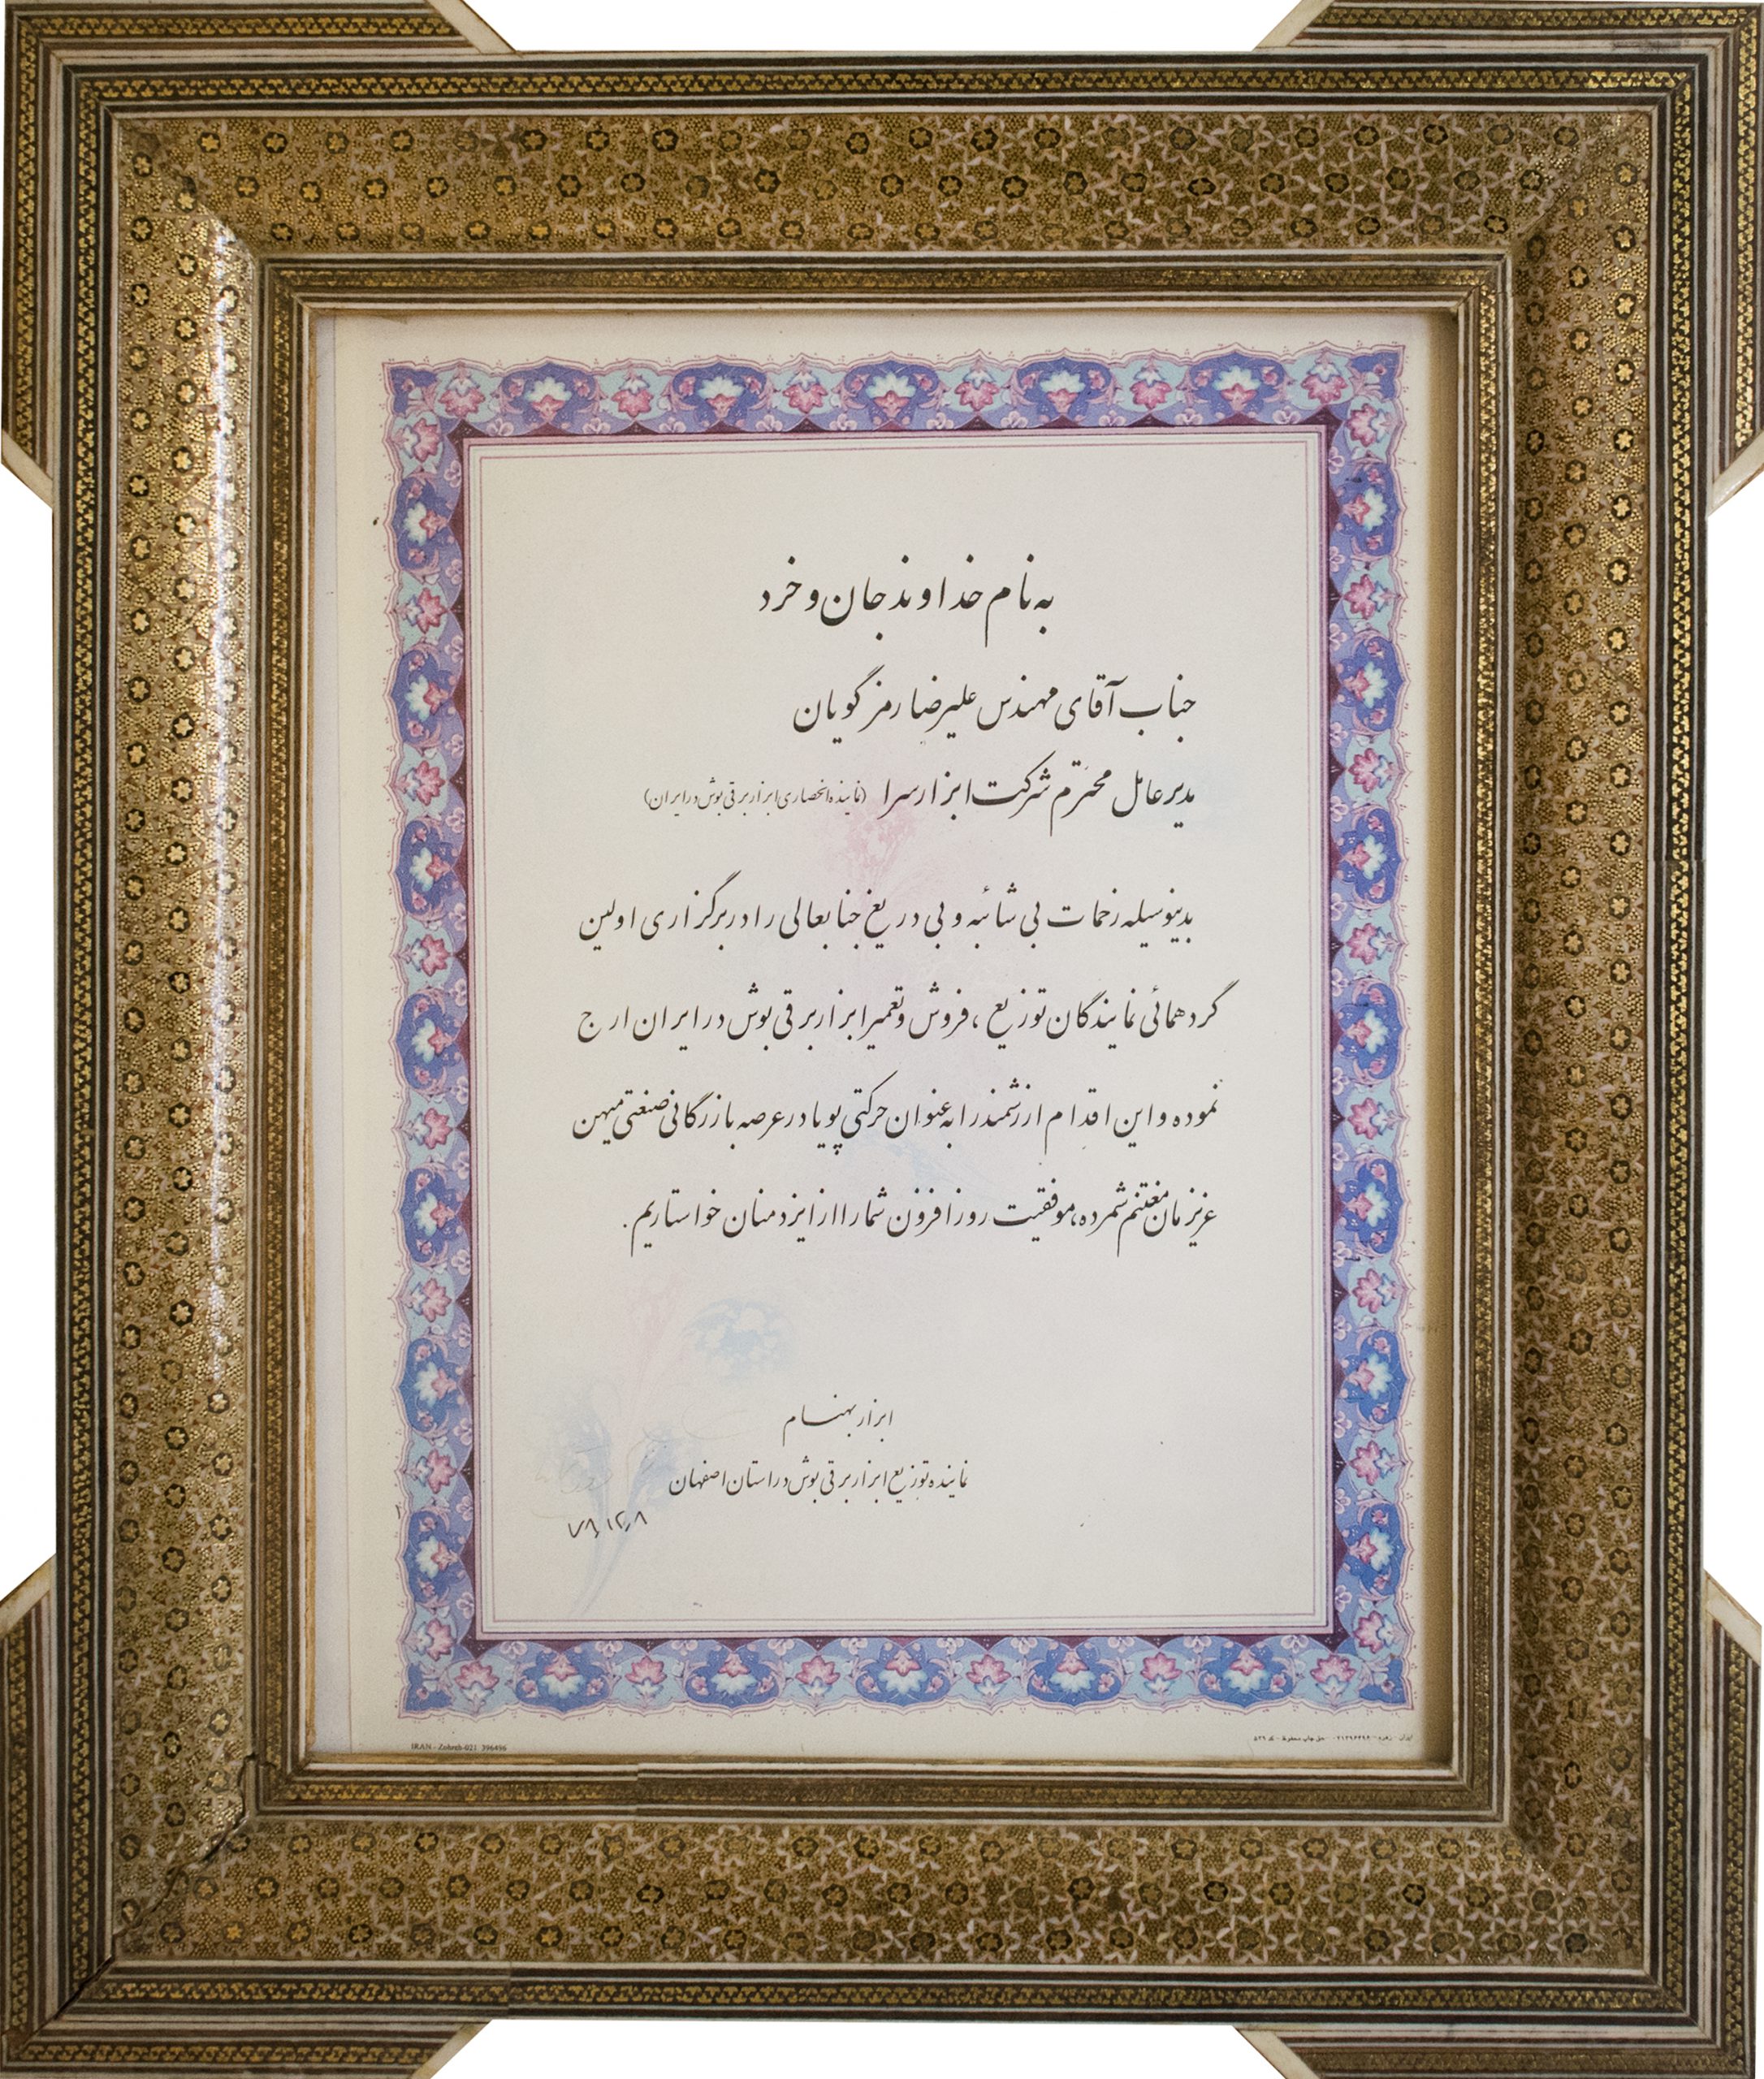 به نام خداوند جان و خرد
جناب آقای مهندس علیرضا رمزگویان
مدیرعامل محترم شرکت ابزارسرا (نماینده انحصاری ابزار برقی بوش در ایران)
بدینوسیله زحمات بی شائبه و بی دریغ جنابعالی را در برگزاری اولین
گردهمائی نمایندگان توزیع ، فروش و تعمیر ابزار برقی بوش در ایران ارج
نموده و این اقدام ارزشمند را به عنوان حرکتی پویا در عرصه بازرگانی صنعتی میهن
عزیزمان مغتنم شمرده، موفقیت روزافزون شما را از ایزد منان خواستاریم .
ابزار بهنام
نماینده توزیع ابزار برقی بوش در استان اصفهان
۷۸٫۱۲٫۸
IRAN - Zohreh-021 396496